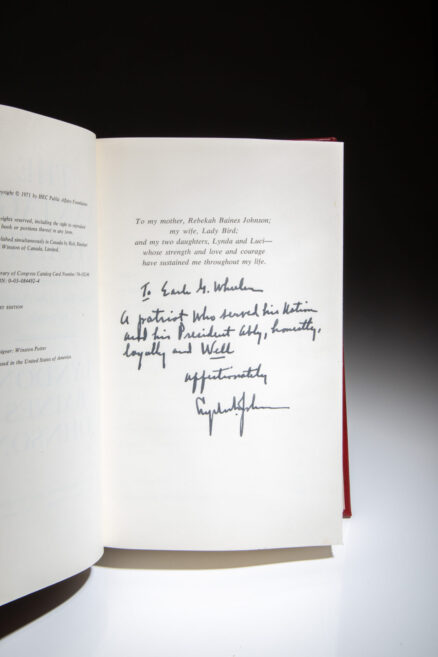 copyright © 1971 by HEC Public Affairs Foundation
rights reserved, including the right to reproduce
book or portions thereof in any form.
published simultaneously in Canada by Holt, Rinehart
Winston of Canada, Limited.
Library of Congress Catalog Card Number:
N: 0-03-084492-4
EDITION
Designer: Winston Potter
in the United States of America
To my mother, Rebekah Baines Johnson;
my wife, Lady Bird;
and my two daughters, Lynda and Luci—
whose strength and love and courage
have sustained me throughout my life.
To Earle G. Wheeler
A patriot who served his Nation
and his President ably, honestly,
loyally and Well
affectionately
Lyndon B. Johnson